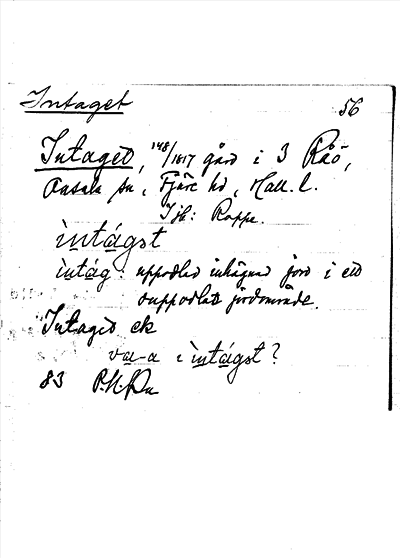 Intaget 56
Intaget, 148/1817 gård i 3 Råö,
Onsala sn, Fjäre hd, Hall. l.
Jfr: Roppe.
ìntágst
ìntág: uppodlad inhägnad jord i ett
ouppodlat jordområde.
Intaget ek
va-a i ìntágst?
83 P.H.